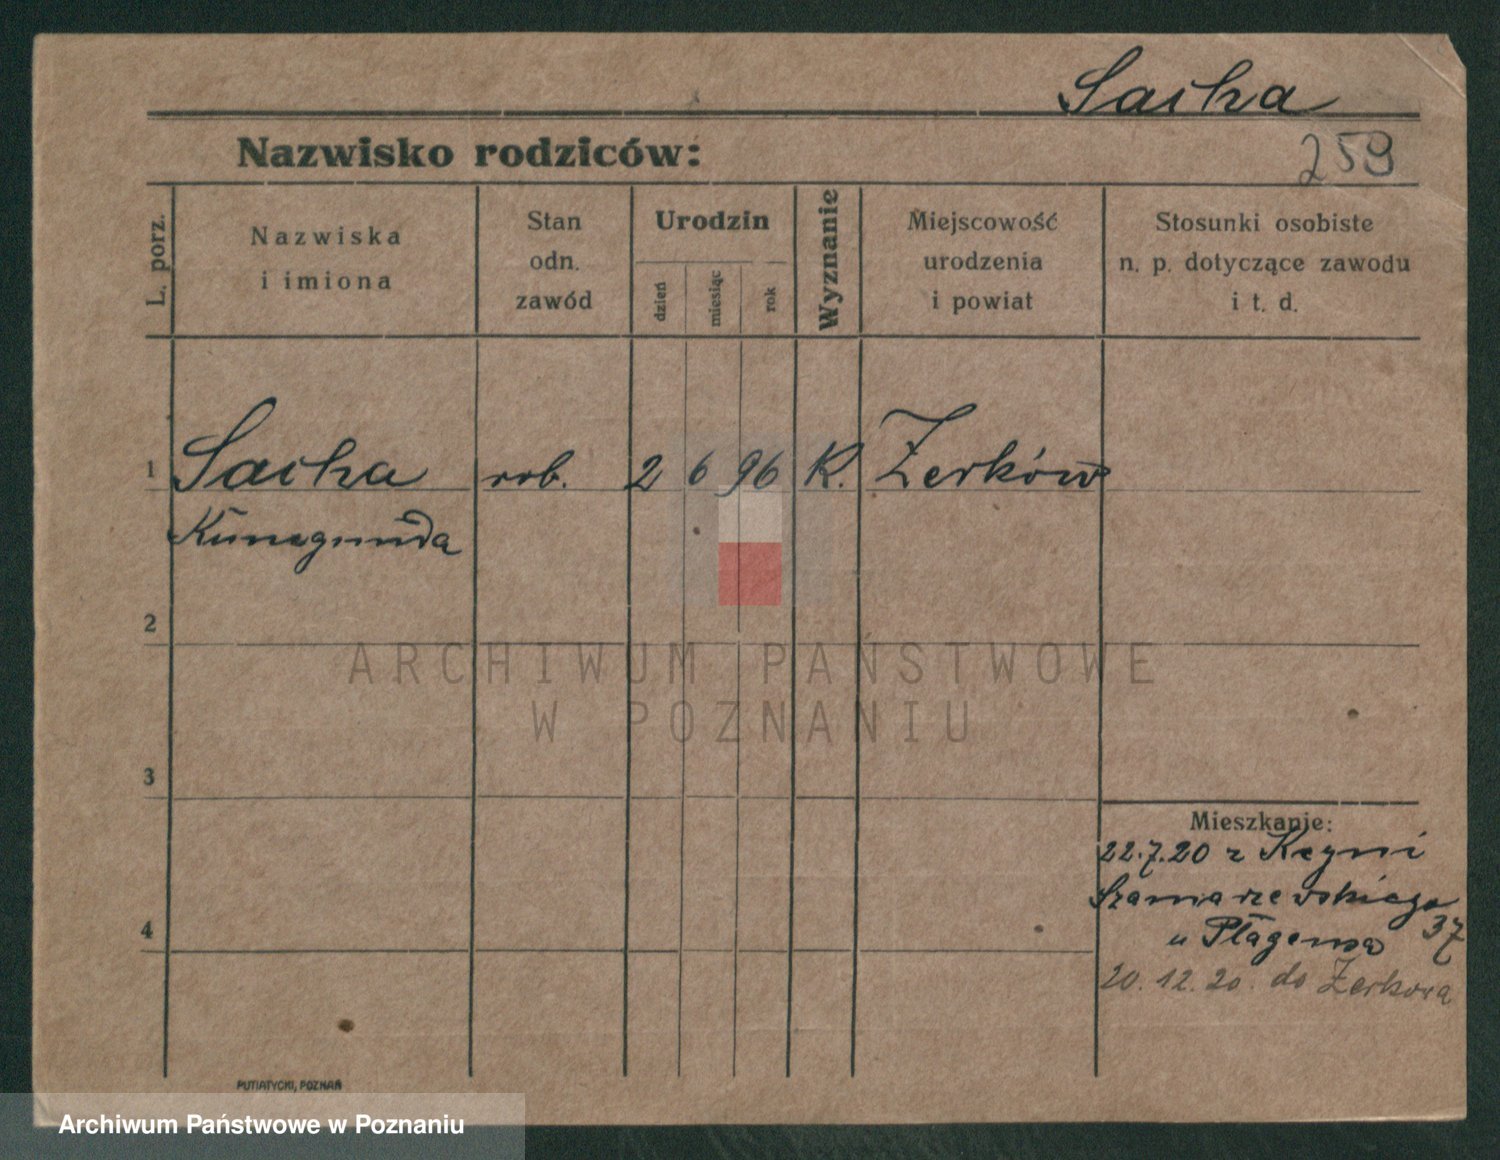 Sacha
Nazwisko rodziców:
259
L. porz.
Nazwiska
i imiona
Stan
odn.
zawód
Urodzin
dzień
miesiąc
rok
Wyznanie
Miejscowość
urodzenia
i powiat
Stosunki osobiste
n. p. dotyczące zawodu
i t. d.
1 Sacha rob. 2 6 96 K. Żerków
Kunegunda
2
ARCHIWUM PAŃSTWOWE
W POZNANIU
3
Mieszkanie:
22.7.20 z Kcyni
Szamarzewskiego
37
u
4
20.12.20. do Żerkowa
PUTIATYCKI, POZNAŃ
Archiwum Państwowe w Poznaniu